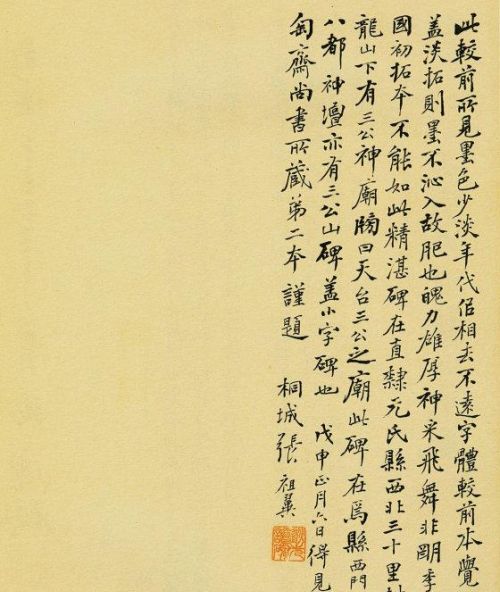 此較前所見墨色少淡年代佀相去不遠字體較前本覺
盖淡拓則墨不沁入故肥也魄力雄厚神采飛舞非朙季
國初拓本不能如此精湛碑在直隸元氏縣西北三十里
龍山下有三公神廟牓曰天台三公之廟此碑在焉縣西門
八都神壇亦有三公山碑盖小字碑也 戊申正月六日得見
匋齋尚書所藏第二本謹題 桐城張祖翼